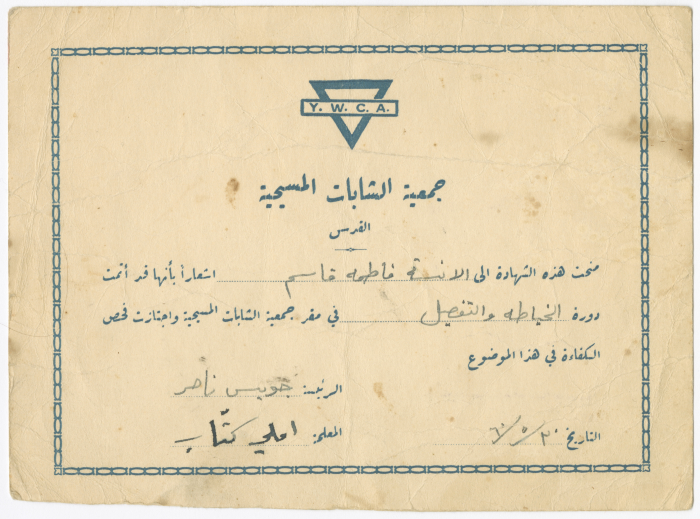 Y. W. C. A.
جمعية الشابات المسيحية
القدس
منحت هذه الشهادة الى الانسة فاطمه قاسم اشعاراً بأنها قد أتمت
دورة الخياطه والتفصيل في مقر جمعية الشابات المسيحية واجتازت فحص
الكفاءة في هذا الموضوع
الرئيسة جويس ناصر
المعلمة املي كتّاب
التاريخ ٣٠/٥/